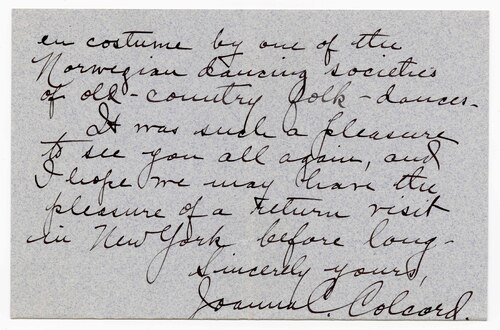 en costume by one of the
Norwegian dancing societies
of old-country folk-dances.
It was such a pleasure
to see you all again, and
I hope we may have the
pleasure of a return visit
in New York before long.
Sincerely yours,
Joanna C. Colcord.